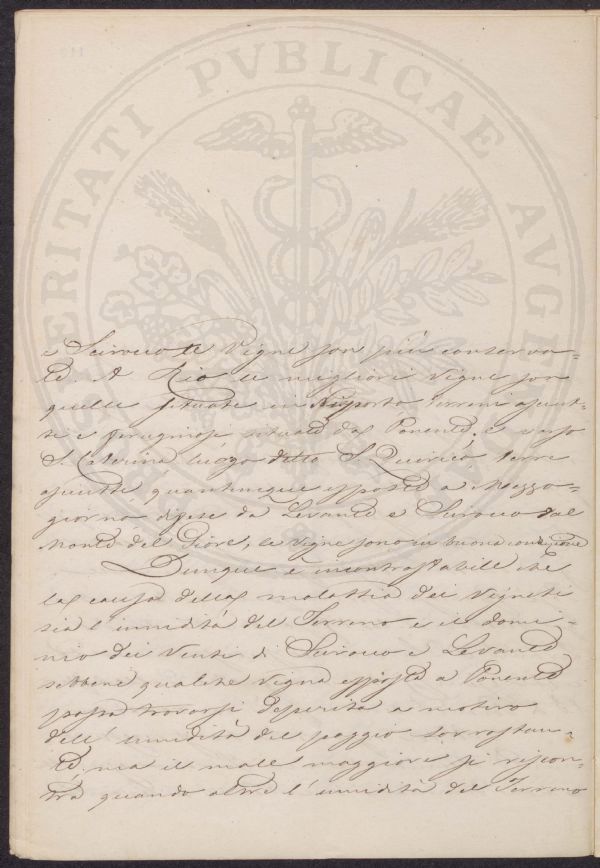 PVBLICAE
e Scirocco le Vigne son più conserva-
te. A Rio le migliori vigne son
quelle situate in terreni asciut-
ti e feruginosi situate dal Ponente, e verso
S. Caterina luogo detto S. Quirico terre
asciutte, quantunque esposte a Mezzo-
giorno difese da Levante e Scirocco dal
Monte del Giove, le vigne sono in buona condizione
Dunque è incontrastabile che
la causa della malattia dei Vigneti
sia l'umidità del Terreno e il domi-
nio dei Venti di Scirocco e Levante
sebbene qualche Vigna esposta a Ponente
possa trovarsi deperita a motivo
dell'umidità del poggio sovrastan-
te, ma il male maggiore si riscon-
tra quando oltre l'umidità del Terreno